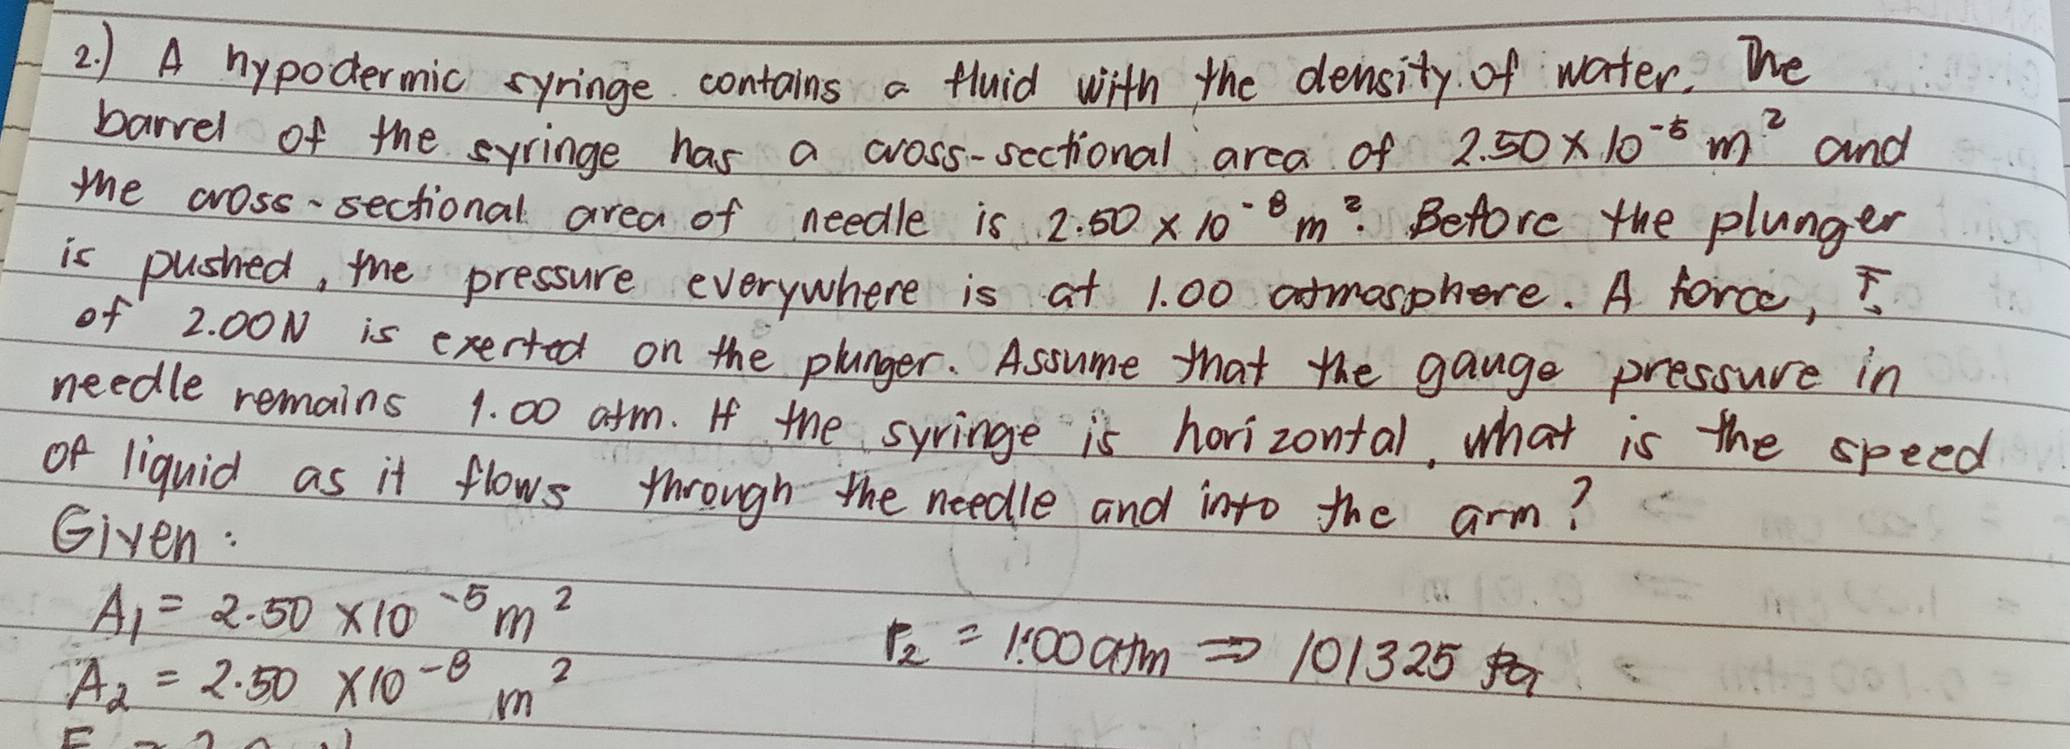 2.) A hypodermic syringe contains a fluid with the density of water. The
barrel of the syringe has a cross-sectional area of 2.50 x 10⁻⁵ m² and
the cross-sectional area of needle is 2.50 x 10⁻⁸ m². Before the plunger
is pushed, the pressure everywhere is at 1.00 atmosphere. A force, F,
of 2.00N is exerted on the plunger. Assume that the gauge pressure in
needle remains 1.00 atm. If the syringe is horizontal, what is the speed
of liquid as it flows through the needle and into the arm?
Given:
A₁ = 2.50 x10⁻⁵ m²
P₂ = 1.00 atm ⇒ 101325 Pa
A₂ = 2.50 x10⁻⁸ m²